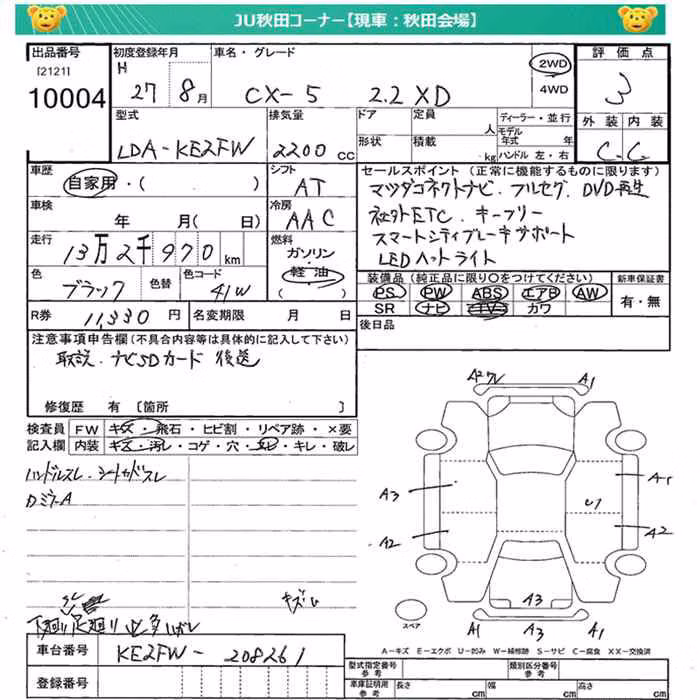 JU秋田コーナー【現車：秋田会場】
出品番号 初度登録年月 車名・グレード 評価点
[2121] H 2WD
10004 27 8月 CX-5 2.2 XD 4WD 3
型式 排気量 ドア 定員 人 ディーラー・並行 外装 内装
モデル年式 年
LDA-KE2FW 2200 CC 形状 積載 kg ハンドル 左・右 C C
車歴 シフト セールスポイント（正常に機能するものに限ります）
自家用・( ) AT マツダコネクトナビ. フルセグ. DVD再生
車検 冷房 社外ETC. キーフリー
年 月(日) AAC スマートシティブレーキサポート
走行 燃料 LEDヘットライト
13万2千970km ガソリン
色 色替 色コード 軽油 装備品（純正品に限り○をつけてください） 新車保証書
ブラック 41W ( ) PS PW ABS エアB AW 有・無
R券 11,330円 名変期限 月 日 SR ナビ TV カワ
注意事項申告欄（不具合内容等は具体的に記入して下さい） 後日品
取説. ナビSDカード 後送
修復歴 有 [箇所 ]
検査員 FW キズ・飛石・ヒビ割・リペア跡・×要
記入欄 内装 キズ・汚レ・コゲ・穴・スレ・キレ・破レ
ハンドルスレ. シートカバースレ
DミラーA
A2 A1
A3 A1
U1
A2 A2
A3
A1 A1
スペア
下廻り足廻り
A－キズ E－エクボ U－凹み W－補修跡 S－サビ C－腐食 XX－交換済
車台番号 KE2FW-208261
登録番号
型式指定番号 参考 類別区分番号 参考
車庫証明用 参考 長さ cm 幅 cm 高さ cm